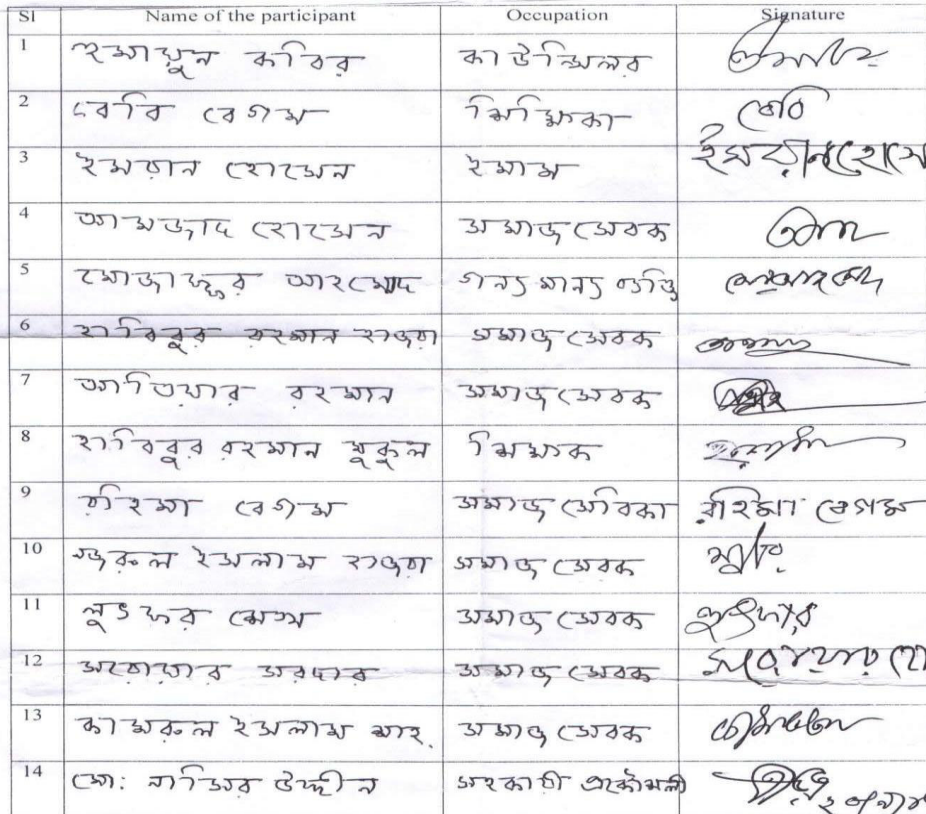 Sl Name of the participant Occupation Signature
1 হুমায়ুন কবির কাউন্সিলর
2 বেবি বেগম শিক্ষিকা বেবি
3 ইমরান হোসেন ইমাম ইমরান হোসে
4 আমজাদ হোসেন সমাজ সেবক
5 মোজাফ্ফর আহমেদ গন্য মান্য ব্যক্তি
6 হাবিবুর রহমান হাজরা সমাজ সেবক
7 আতিয়ার রহমান সমাজ সেবক
8 হাবিবুর রহমান মুকুল শিক্ষক
9 রহিমা বেগম সমাজ সেবিকা রহিমা বেগম
10 ইসলাম হাজরা সমাজ সেবক
11 লুৎফর সমাজ সেবক লুৎফর
12 সরোয়ার সরদার সমাজ সেবক
13 কামরুল ইসলাম সমাজ সেবক
14 মো: নাসির উদ্দীন সহকারী প্রকৌশলী